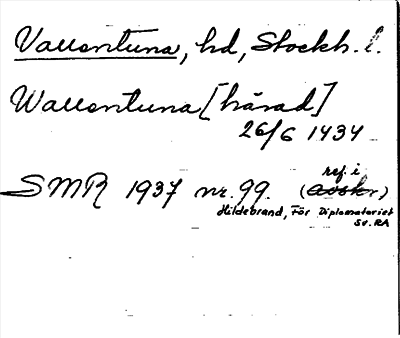 Vallentuna, hd, Stockh. l.
Wallentuna [härad]
26/6 1434
ref. i
SMR 1937 nr. 99. (avskr)
Hildebrand, För Diplomatariet
Sv. RA